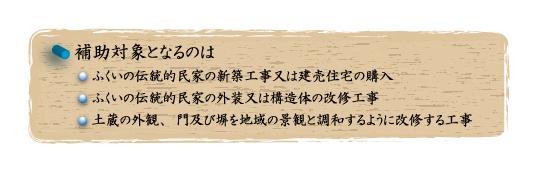 補助対象となるのは
ふくいの伝統的民家の新築工事又は建売住宅の購入
ふくいの伝統的民家の外装又は構造体の改修工事
土蔵の外観、門及び塀を地域の景観と調和するように改修する工事